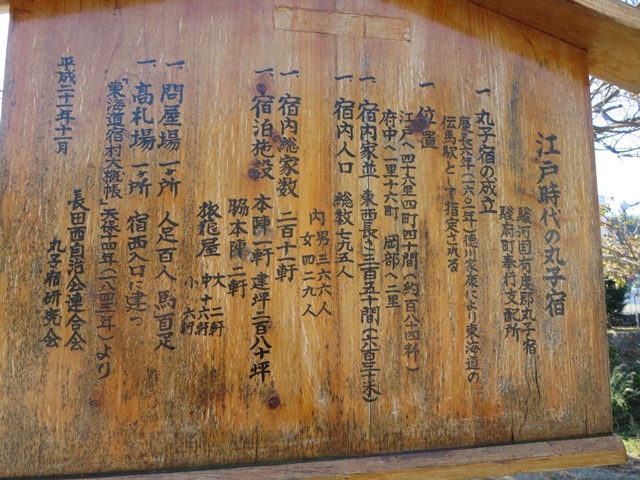 江戸時代の丸子宿
駿河国有度郡丸子宿
駿府町奉行支配所
一 丸子宿の成立
慶長六年(一六〇一年)徳川家康により東海道の
伝馬駅として指定される
一 位置
江戸へ四十六里四町四十間(約百八十四粁)
府中へ一里十六町 岡部へ二里
一 宿内家並 東西長さ三百五十間(六百三十米)
一 宿内人口 総数七九五人
内 男 三六六人
女 四二九人
一 宿内総家数 二百十一軒
一 宿泊施設 本陣一軒 建坪二百八十坪
脇本陣 二軒
旅籠屋 大 二軒
中 十六軒
小 六軒
一 問屋場一ヶ所 人足百人 馬百疋
一 高札場一ヶ所 宿西入口に建つ
「東海道宿村大概帳」天保十四年(一八四三年)より
平成二十一年十一月
長田西自治会連合会
丸子宿研究会